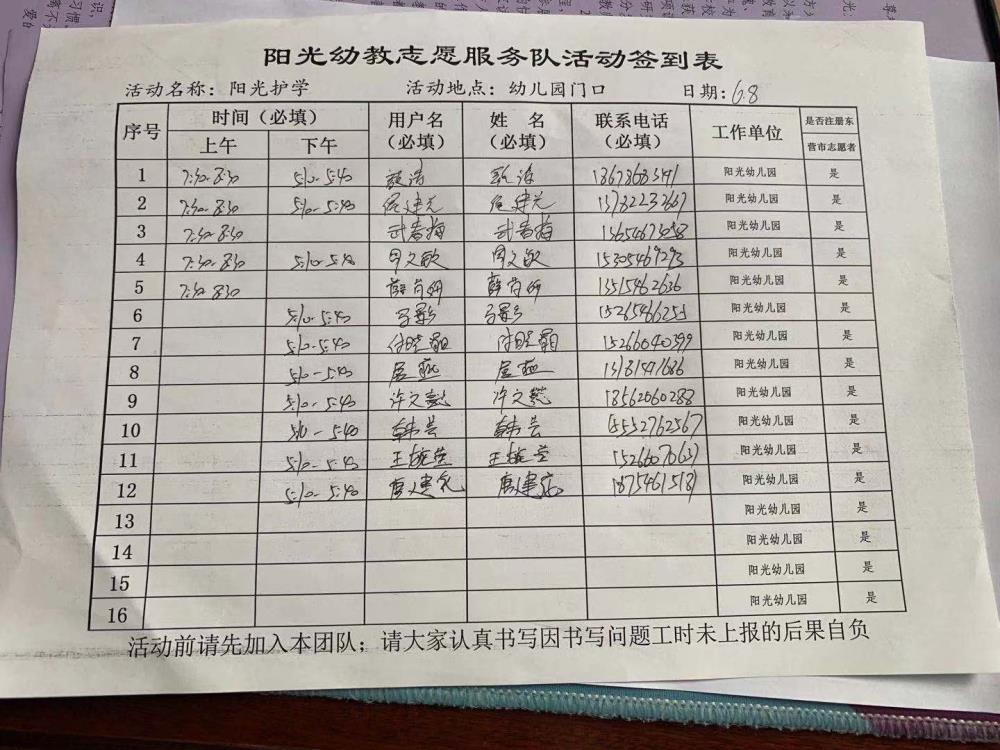 阳光幼教志愿服务队活动签到表
活动名称：阳光护学 活动地点：幼儿园门口 日期：6.8
序号 时间（必填） 用户名（必填） 姓 名（必填） 联系电话（必填） 工作单位 是否注册东营市志愿者
上午 下午
1 7:30-8:30 5:10-5:40 阳光幼儿园 是
2 7:30-8:30 5:10-5:40 阳光幼儿园 是
3 7:30-8:30 武春梅 武春梅 阳光幼儿园 是
4 7:30-8:30 5:10-5:40 周文敏 周文敏 15305469293 阳光幼儿园 是
5 7:30-8:30 13515462636 阳光幼儿园 是
6 5:10-5:40 马影 马影 阳光幼儿园 是
7 5:10-5:40 15266040399 阳光幼儿园 是
8 5:10-5:40 屈燕 屈燕 阳光幼儿园 是
9 5:10-5:40 许文懿 许文懿 18562060288 阳光幼儿园 是
10 5:10-5:40 韩芸 韩芸 15552762567 阳光幼儿园 是
11 5:10-5:40 阳光幼儿园 是
12 5:10-5:40 阳光幼儿园 是
13 阳光幼儿园 是
14 阳光幼儿园 是
15 阳光幼儿园 是
16 阳光幼儿园 是
活动前请先加入本团队；请大家认真书写因书写问题工时未上报的后果自负